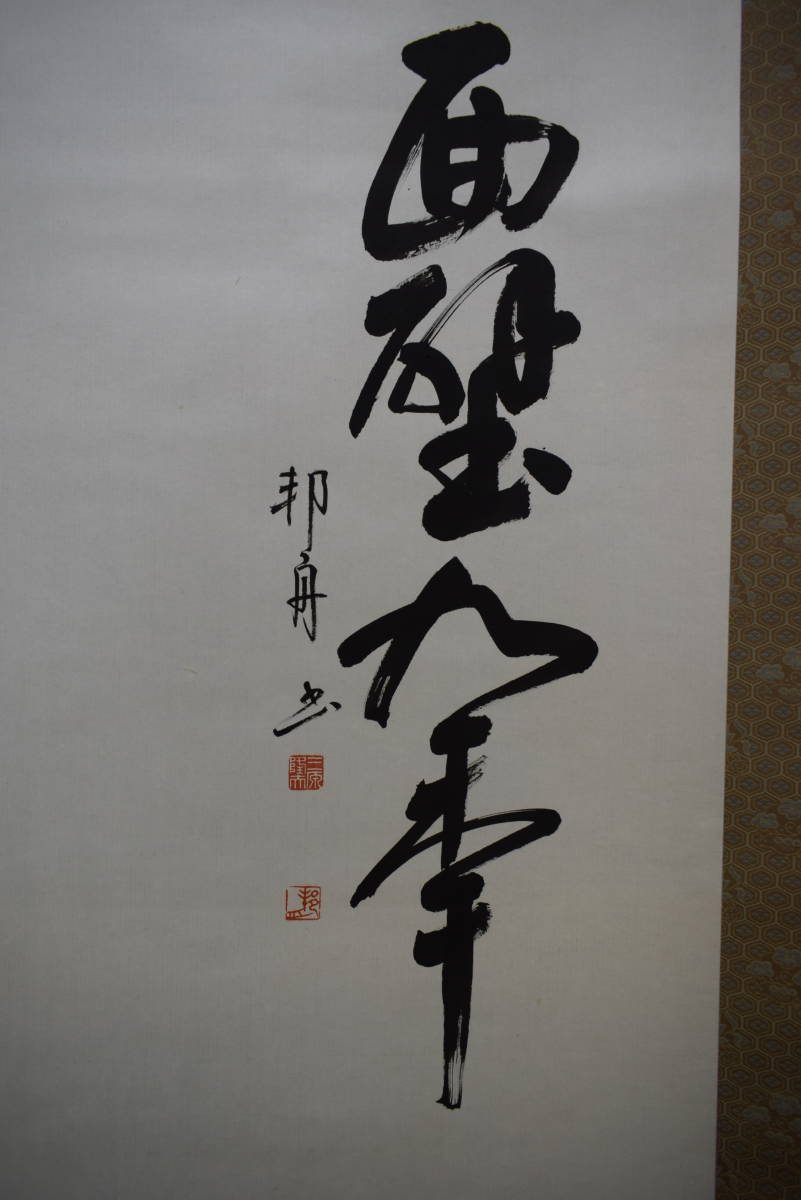 面壁九年
邦舟書